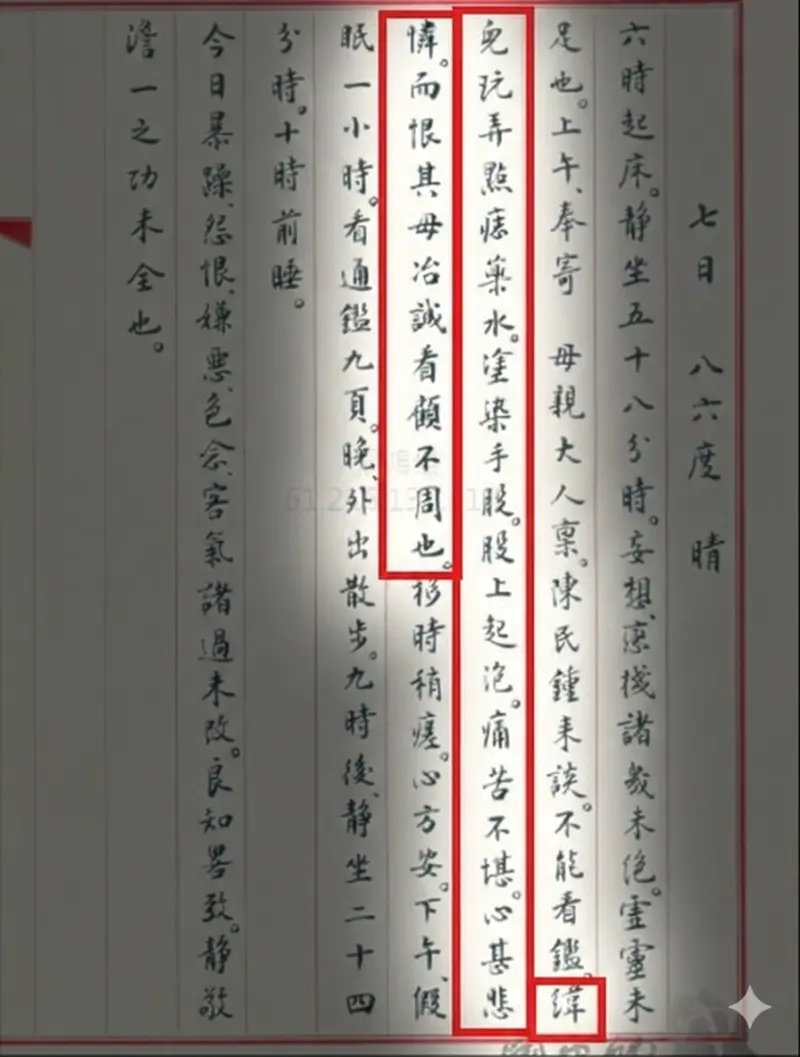 七日 八六度 晴
六時起床。靜坐五十八分時。妄想、惡機諸幾未絕。靈靈未
足也。上午、奉寄 母親大人稟。陳民鍾來談。不能看鑑。緯
兒玩弄點痣藥水。塗染手股。股上起泡。痛苦不堪。心甚悲
憐。而恨其母冶誠看顧不周也。移時稍瘥。心方安。下午、假
眠一小時。看通鑑九頁。晚、外出散步。九時後、靜坐二十四
分時。十時前睡。
今日暴躁、怨恨、嫌惡、色念、客氣諸過未改。良知畧致。靜敬
澹一之功未全也。